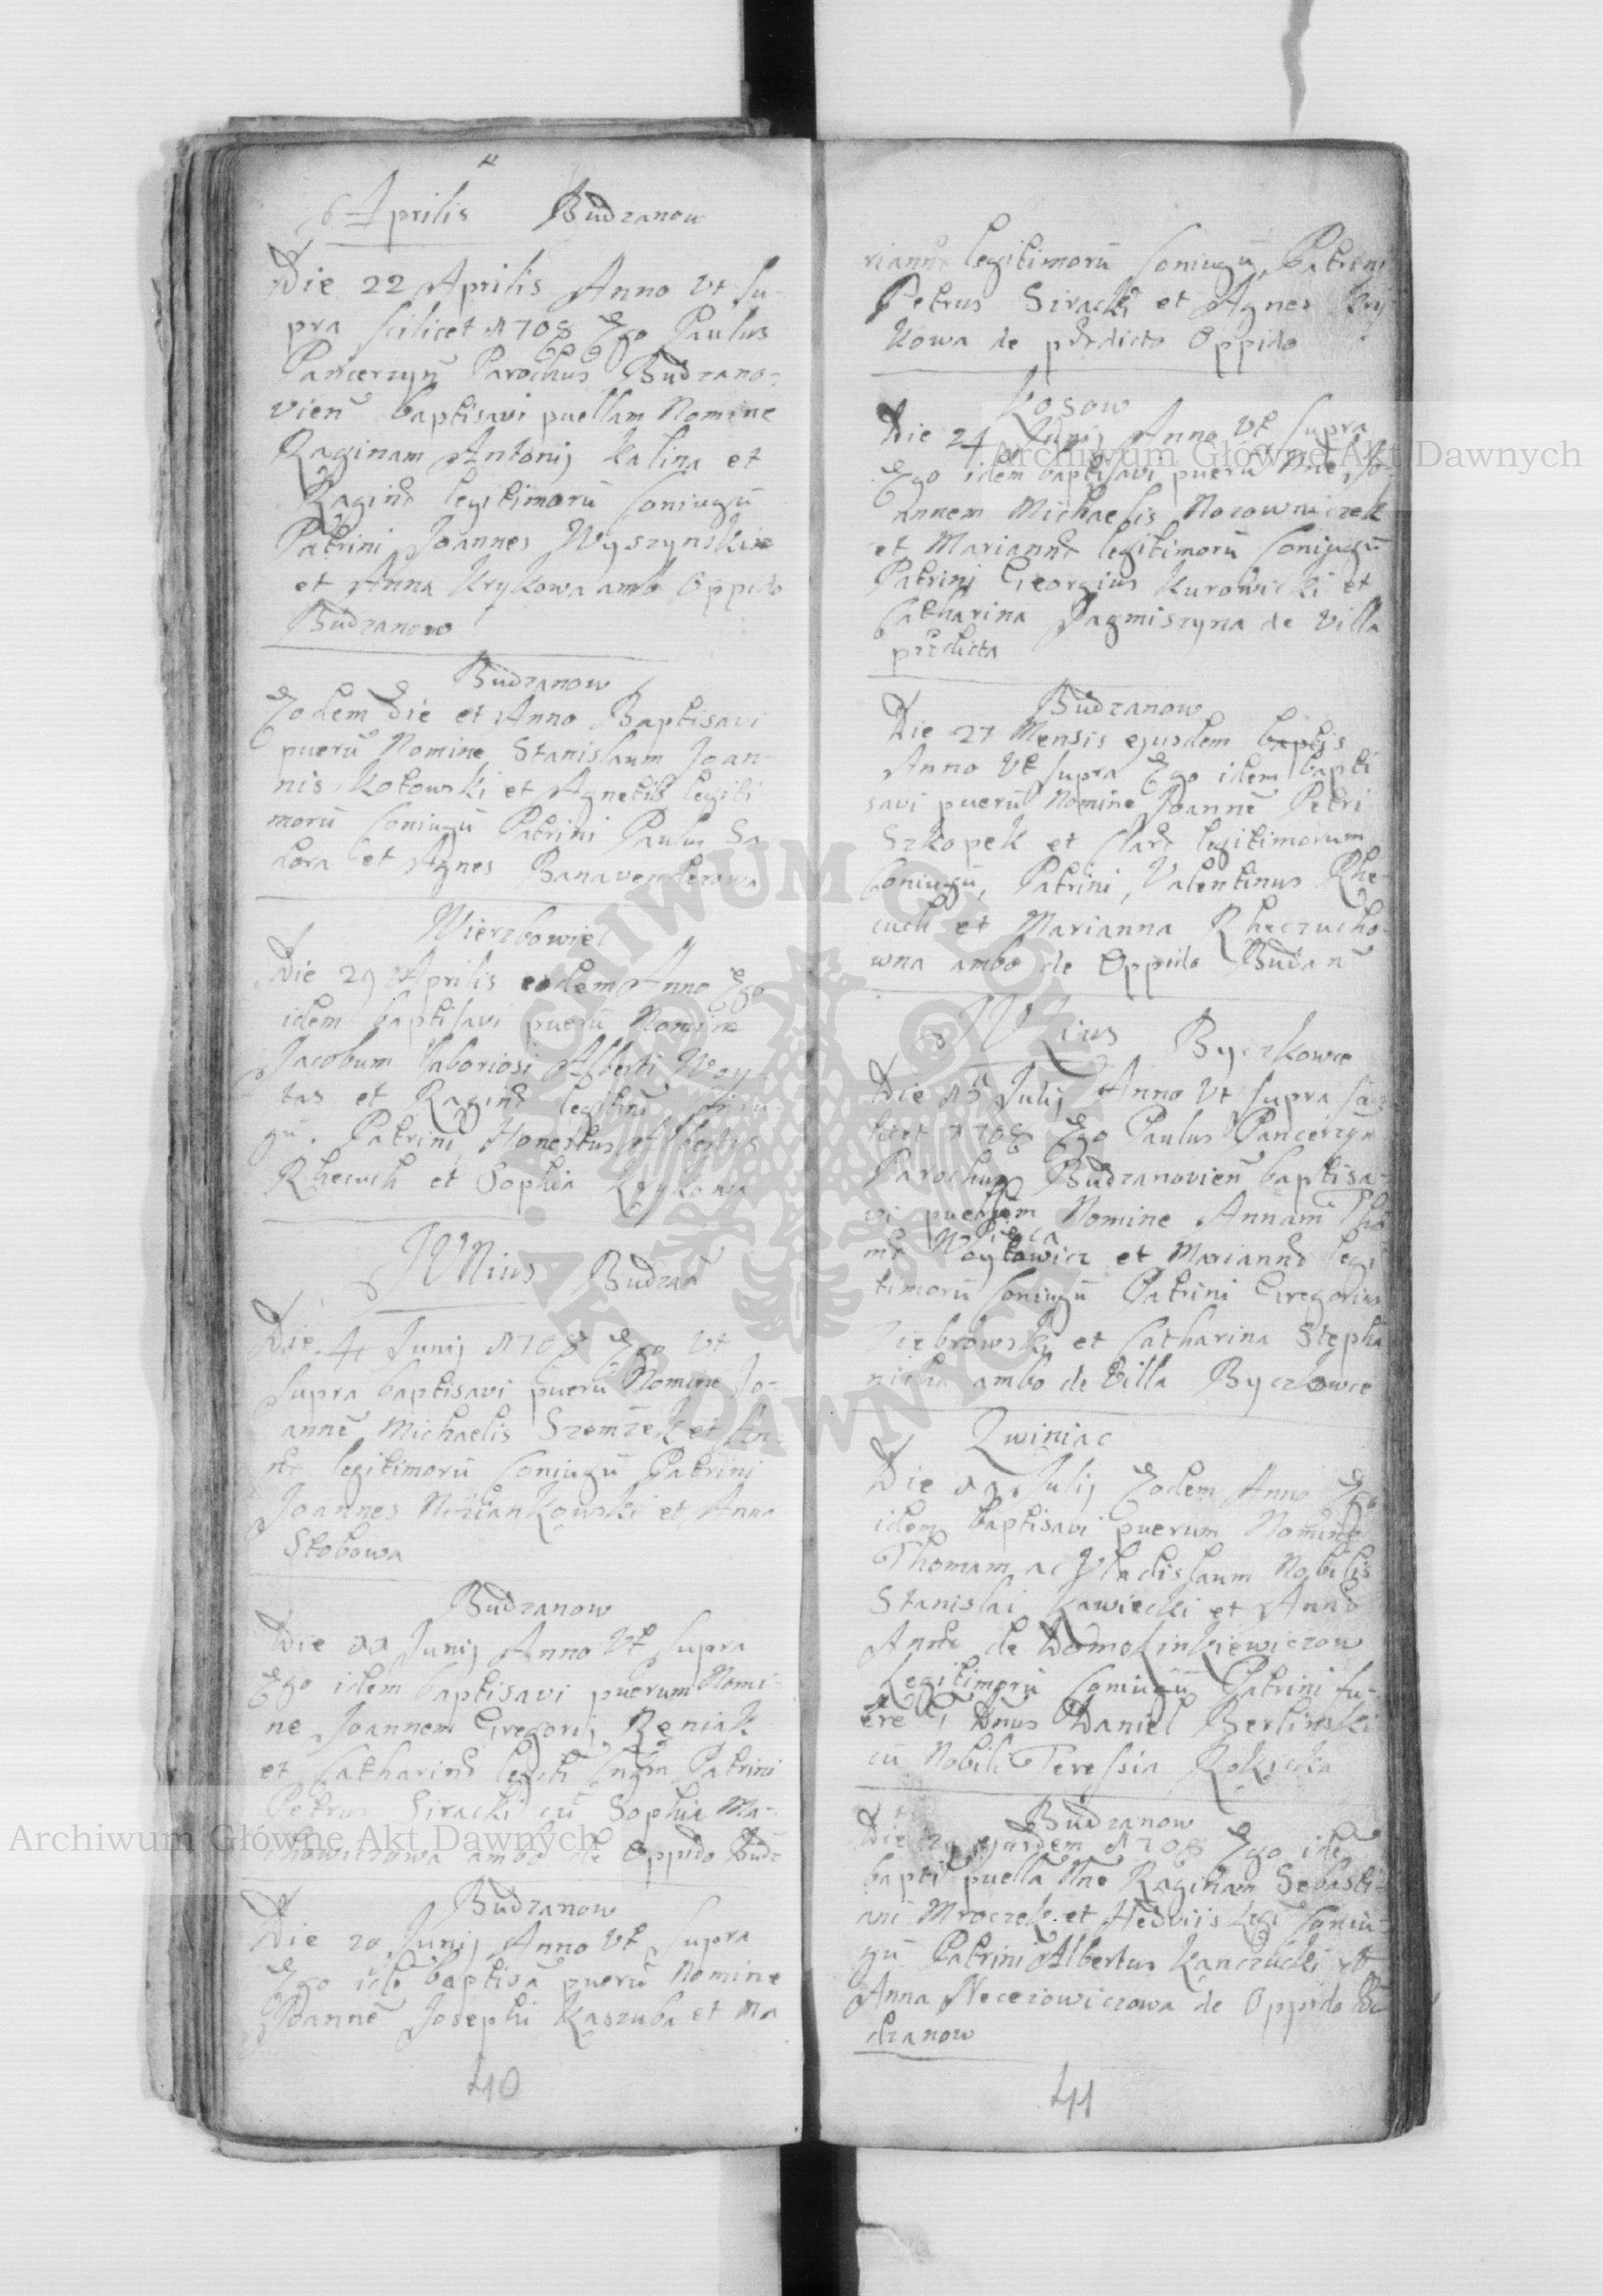 Aprilis Budzanow
Die 22 Aprilis Anno Vt su-
pra scilicet 1708 Ego Paulus
Pancerzyn Parochus Budzano-
vien baptisavi puellam Nomine
Raginam Antonij Kalina et
Raginæ legitimorū Coniugū
Patrini Joannes Wyszynski
et Anna Krykowa ambo Oppido
Budzanow
Budzanow
Eodem Die et Anno Baptisavi
puerū Nomine Stanislaum Joan-
nis Kotowski et Agnetis legiti
morū Coniugū Patrini Paulus Sa
dora et Agnes Banavenderowa
Wierzbowiec
Die 29 Aprilis eodem Anno Ego
idem baptisavi puerū Nomine
Jacobum laboriosi Alberti Woy-
tas et Raginæ legitim Coniu-
gū. Patrini Honestus Albertus
Rhecuch et Sophia Krykowa
JUNius Budzan
Die 4 Junij 1708 Ego Vt
supra baptisavi puerū Nomine Jo-
annē Michaelis Szemzek et An-
næ legitimorū Coniugū Patrini
Joannes Niziankowski et Anna
Stobowa
Budzanow
Die 11 Junij Anno Vt supra
Ego idem baptisavi puerum Nomi-
ne Joannem Gregorij Reniak
et Catharinæ legiti Patrini
Petrus Siracki cū Sophia Ma-
ambo de Oppido Budz
Budzanow
Die 20 Junij Anno Vt supra
Ego idē baptisa puerū Nomine
Joannē Josephi Kaszuba et Ma
40
riannæ legitimorū Coniugū, Patrini
Petrus Siracki et Agnes Kry
kowa de prædicto Oppido
Kosow
Die 24 Junij Anno Vt supra
Ego idem baptisavi puerū Nne Jo-
annem Michaelis Nozowniczek
et Mariannæ legitimorū Coniugū
Patrini Georgius Kurowicki et
Catharina Jagmiszyna de Villa
prædicta
Budzanow
Die 27 Mensis ejusdem baptis
Anno Vt supra Ego idem bapti
savi puerū Nomine Joannē Petri
Szkopek et Claræ legitimorum
Coniugū, Patrini, Valentinus Rhe-
cuch et Marianna Rheczucho-
wna ambo de Oppido Budan
JULius Byczkowce
Die 15 Julij Anno Vt supra sci-
licet 1708 Ego Paulus Pancerzyn
Parochus Budzanovien baptisa-
vi Nomine Annam Tho
mæ Woytowicz et Mariannæ legi
timorū Coniugū Patrini Gregorius
Ziebrowski et Catharina Stepha
nicha ambo de Villa Byczkowce
Zwiniac
Die 11 Julij Eodem Anno Ego
idem baptisavi puerum Nomine
Thomam ac Vladislaum Nobilis
Stanislai Kawiecki et Annæ
Annæ de Domo Linkiewiczow
Legitimorū Coniugū Patrini fu-
ere Dnus Daniel Berlinski
cū Nobili Teressia Rokicka
Budzanow
Die ejusdem 1708 Ego idē
bapti puella Nne Raginam Sebasti-
ani Mroczek et Hedviis Legi Coniu-
gū Patrini Albertus Kanczucki et
Anna Necezowiczowa de Oppido Bu
dzanow
41
Archiwum Główne Akt Dawnych
Archiwum Główne Akt Dawnych
ARCHIWUM GŁÓWNE AKT DAWNYCH